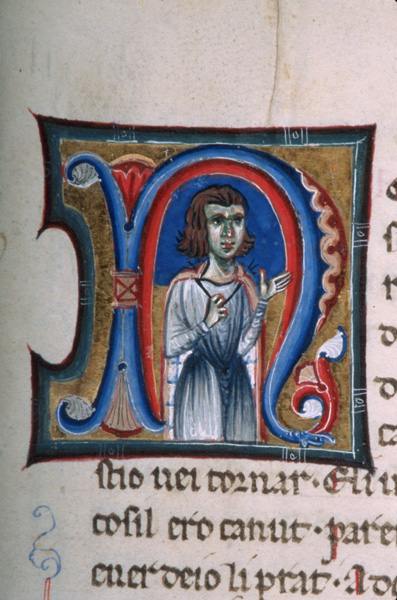 N
stio uei tornar· Eli u
cosil ero canut· pare
euer deio li prat· Ado